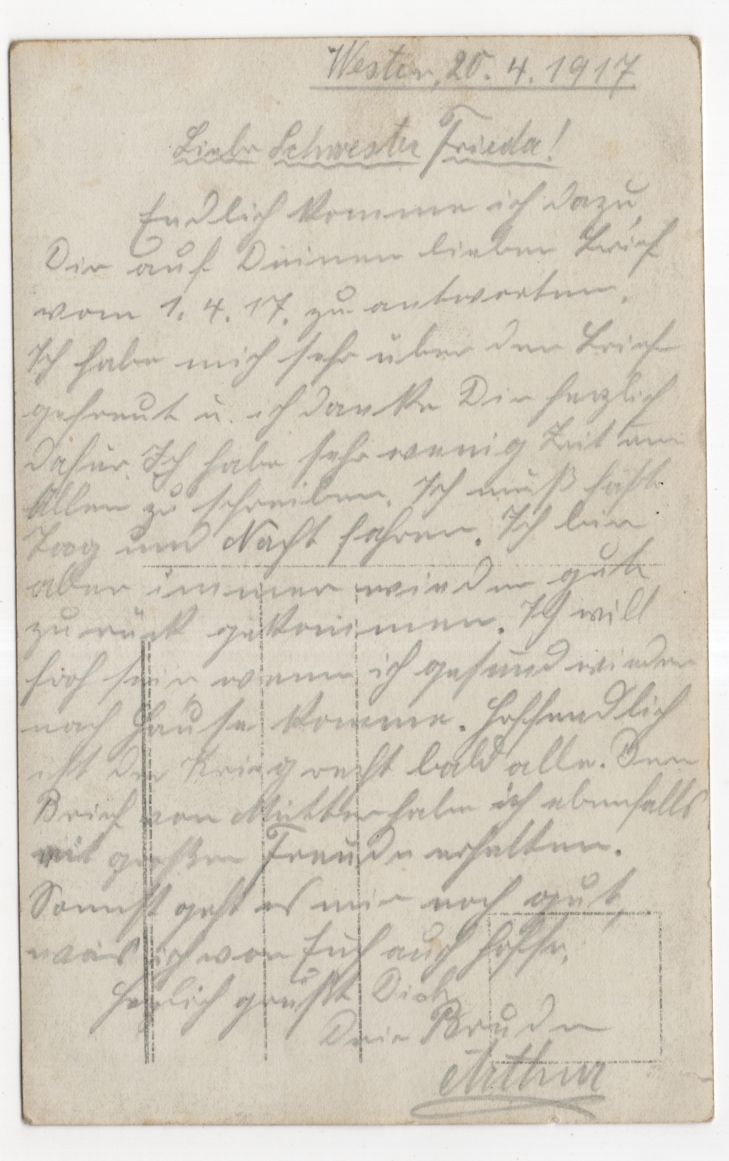 Westen, 20. 4. 1917
Liebe Schwester Frieda!
Endlich komme ich dazu,
Dir auf Deinen lieben Brief
vom 1. 4. 17. zu antworten.
Ich habe mich sehr über den Brief
gefreut u. ich danke Dir herzlich
dafür. Ich habe sehr wenig Zeit um
Allen zu schreiben. Ich muß fast
Tag und Nacht fahren. Ich bin
aber immer wieder gut
zurück gekommen. Ich will
froh sein wenn ich gesund wieder
nach Hause komme. Hoffendlich
ist der Krieg recht bald alle. Den
Brief von Mutter habe ich ebenfalls
mit großer Freude erhalten.
Sonnst geht es mir noch gut,
was ich von Euch auch hoffe.
Herzlich grüßt Dich
Dein Bruder
Arthur